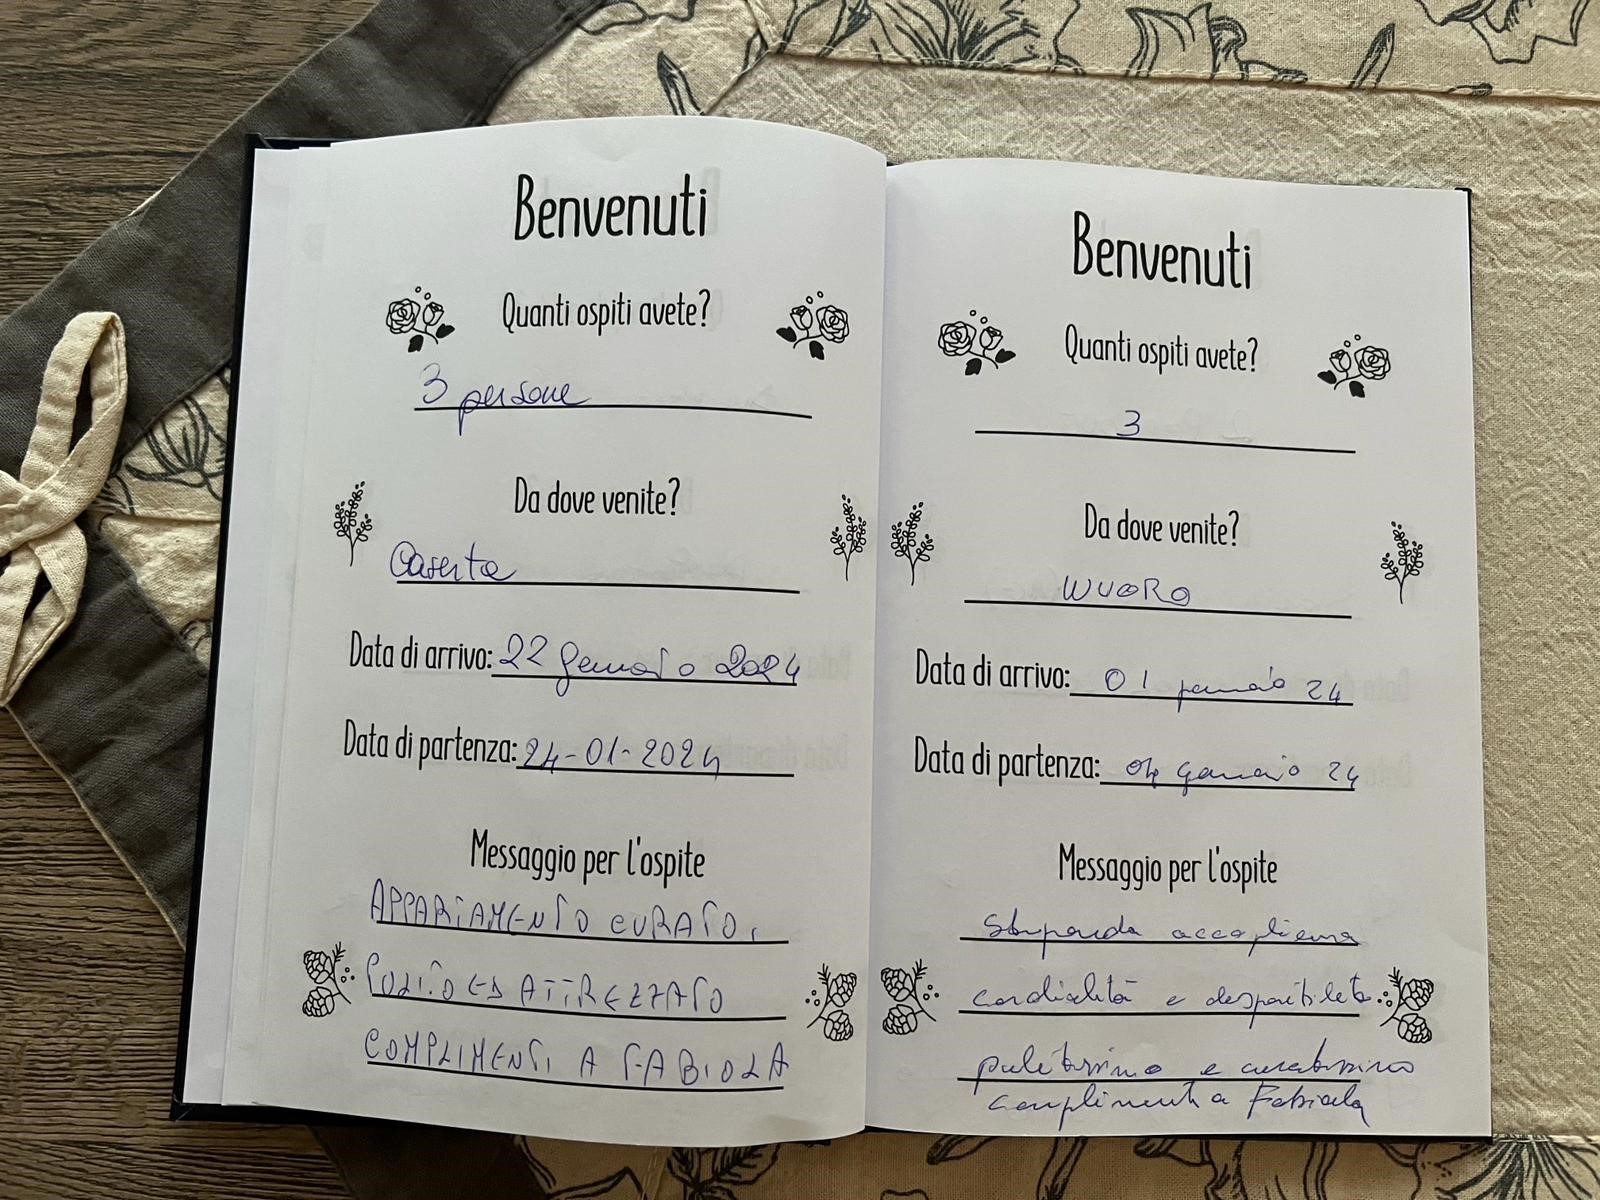 Benvenuti
Quanti ospiti avete?
3 persone
Da dove venite?
Caserta
Data di arrivo: 22 Gennaio 2024
Data di partenza: 24-01-2024
Messaggio per l'ospite
APPARTAMENTO CURATO,
PULITO ED ATTREZZATO
COMPLIMENTI A FABIOLA
Benvenuti
Quanti ospiti avete?
3
Da dove venite?
NUORO
Data di arrivo: 01 gennaio 24
Data di partenza: 04 Gennaio 24
Messaggio per l'ospite
Stupenda accoglienza
cordialità e
pulitissimo e curatissimo
complimenti a Fabiola